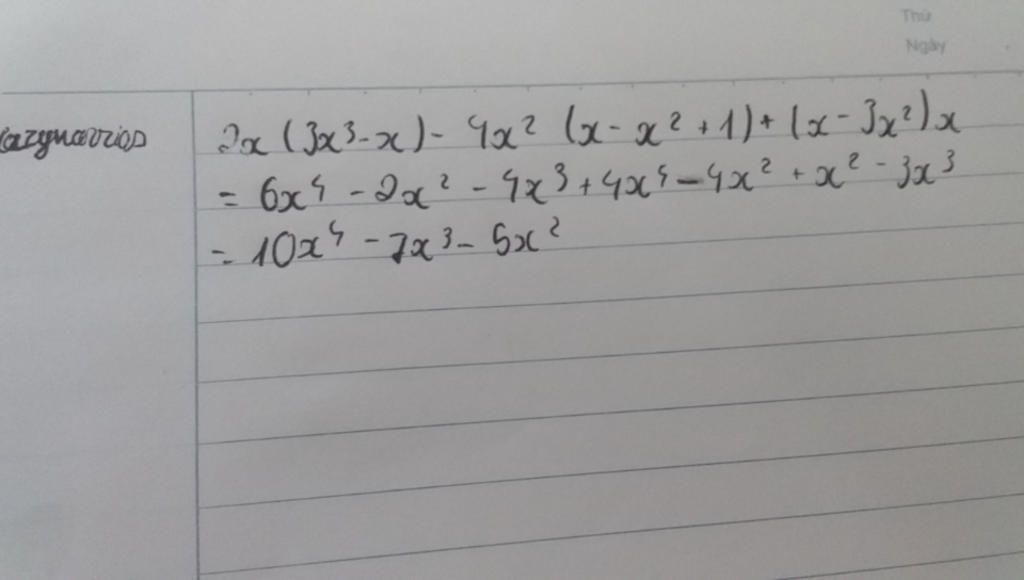 Thứ
Ngày
2x (3x³ - x) - 4x² (x - x² + 1) + (x - 3x²)x
= 6x⁴ - 2x² - 4x³ + 4x⁴ - 4x² + x² - 3x³
= 10x⁴ - 7x³ - 5x²